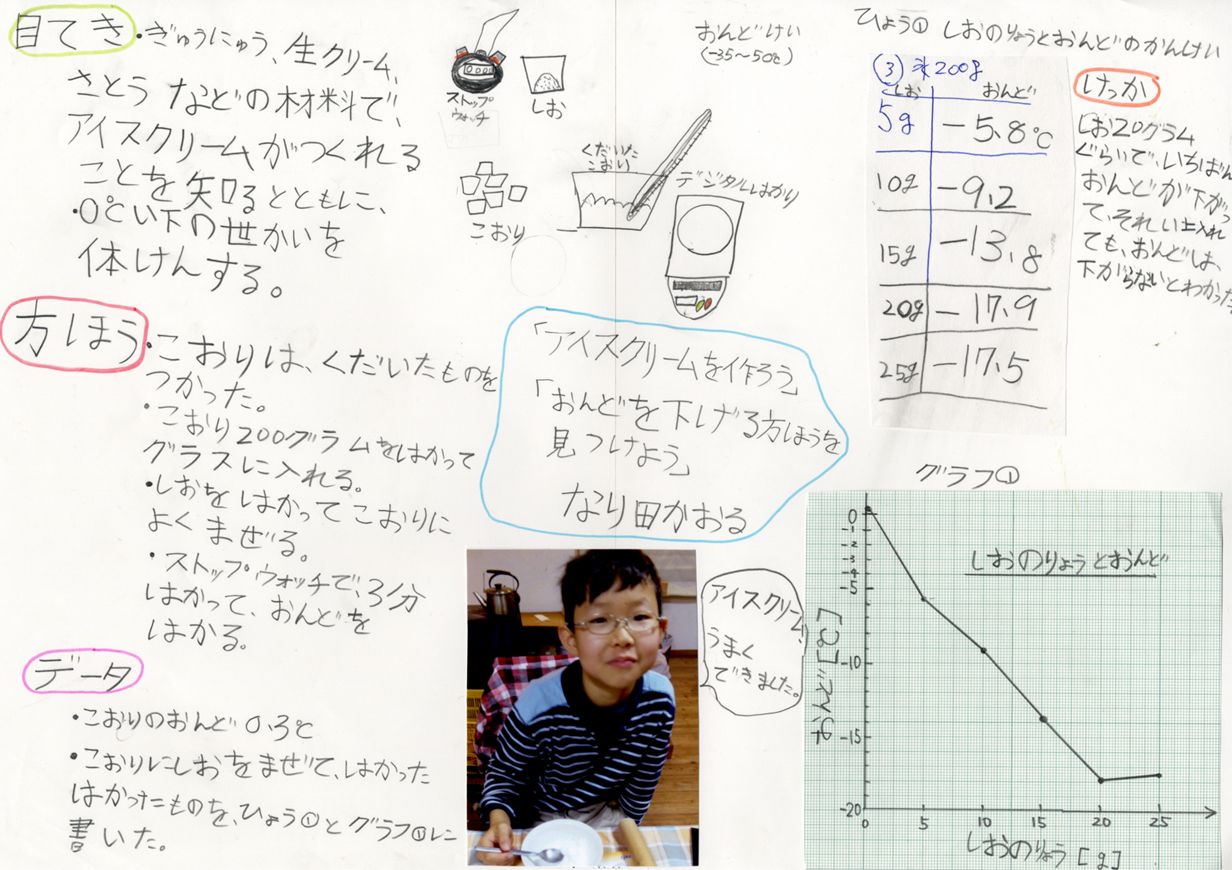 目てき・ぎゅうにゅう、生クリーム、
さとうなどの材料で、
アイスクリームがつくれる
ことを知るとともに、
・0℃い下の世かいを
体けんする。
方ほう・こおりは、くだいたものを
つかった。
・こおり200グラムをはかって
グラスに入れる。
・しおをはかってこおりに
よくまぜる。
・ストップウォッチで、3分
はかって、おんどを
はかる。
データ
・こおりのおんど0.3℃
・こおりにしおをまぜて、はかった
はかったものを、ひょう①とグラフ①に
書いた。
ストップ
ウォッチ
しお
おんどけい
(-35~50℃)
くだいた
こおり
こおり
デジタルはかり
「アイスクリームを作ろう」
「おんどを下げる方ほうを
見つけよう」
なり田かおる
アイスクリーム、
うまく
できました。
ひょう① しおのりょうとおんどのかんけい
③氷200g
しお おんど
5g -5.8℃
10g -9.2
15g -13.8
20g -17.9
25g -17.5
けっか
しお20グラム
ぐらいで、いちばん
おんどが下がっ
て、それい上入れ
ても、おんどは、
下がらないとわかった
グラフ①
しおのりょうとおんど
おんど[℃]
0
-1
-2
-3
-4
-5
-10
-15
-20
0 5 10 15 20 25
しおのりょう[g]